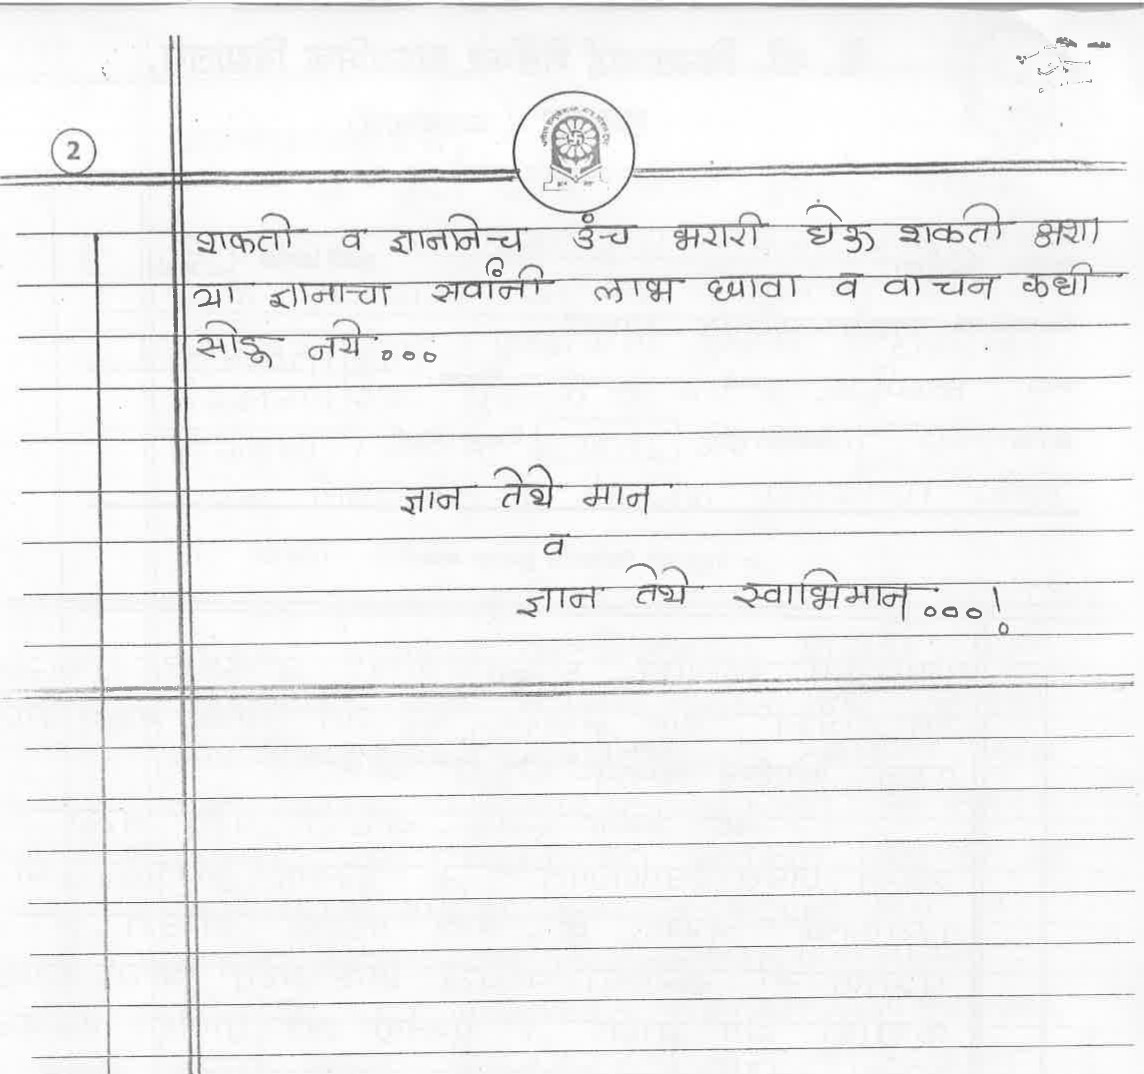 2
शकतो व ज्ञानानेच उंच भरारी घेऊ शकतो अशा
या ज्ञानाचा सर्वांनी लाभ घ्यावा व वाचन कधी
सोडू नये...
ज्ञान तेथे मान
व
ज्ञान तेथे स्वाभिमान...!